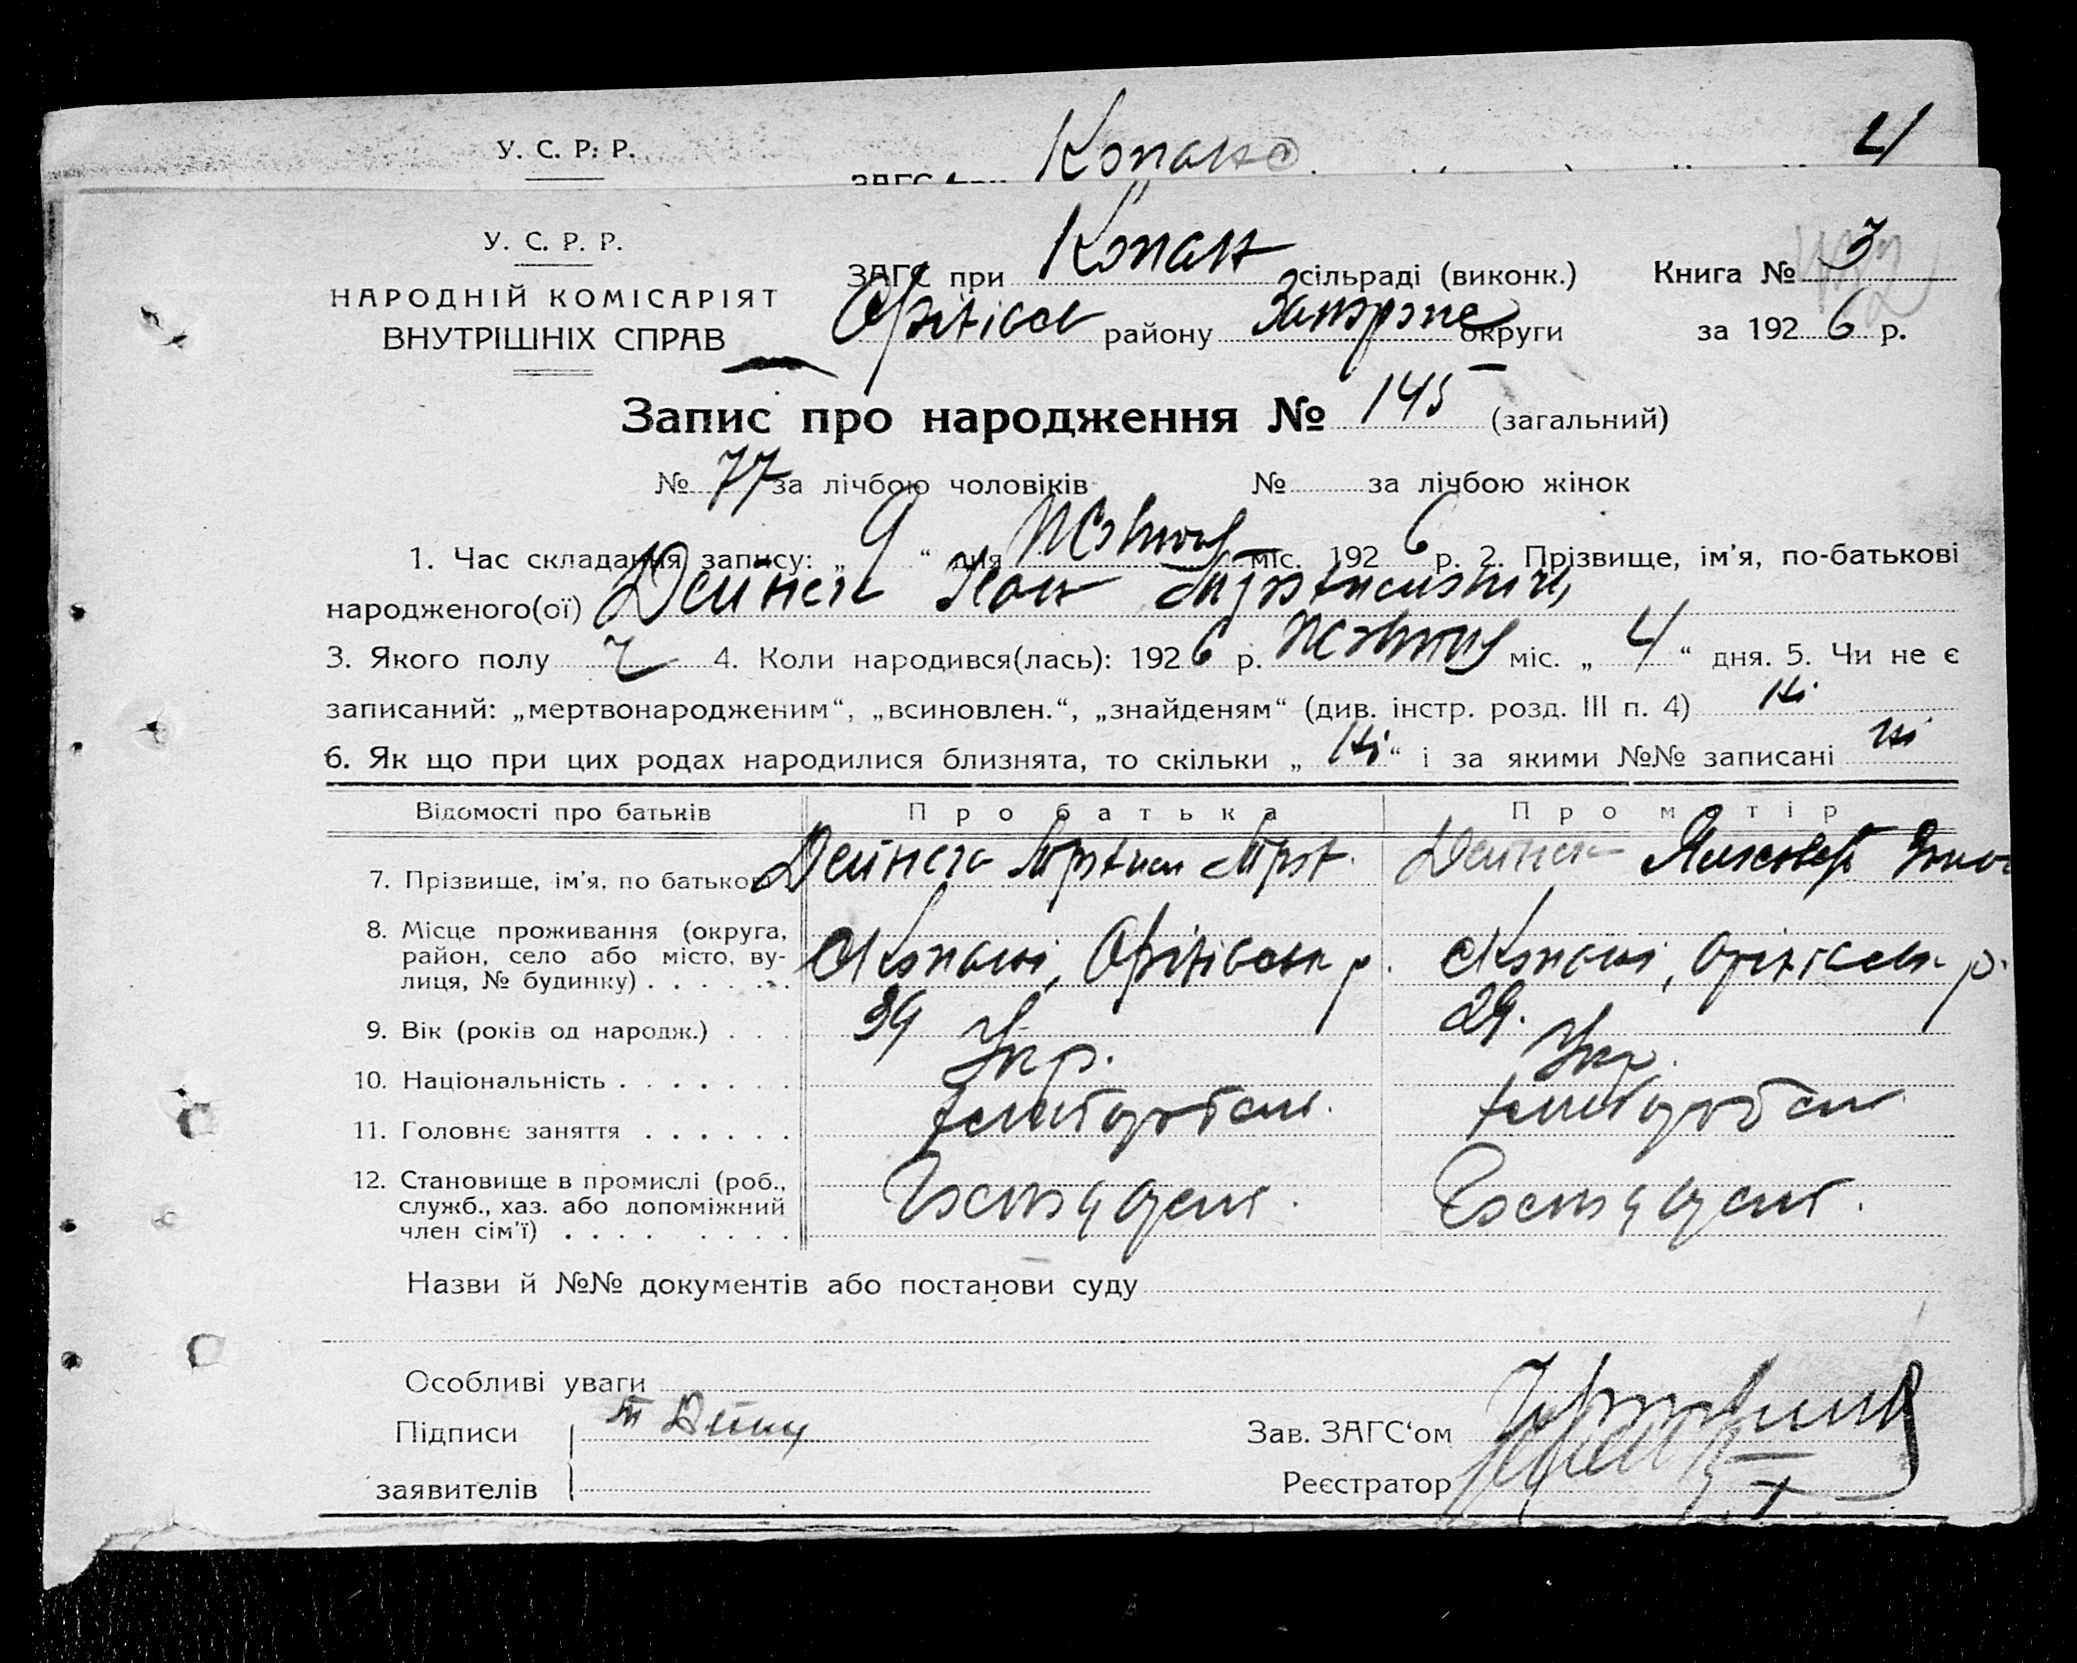 У. С. Р. Р.
Копан
4
У. С. Р. Р.
НАРОДНІЙ КОМІСАРІЯТ
ВНУТРІШНІХ СПРАВ
ЗАГС при Копан сільраді (виконк.) Книга № 3
Оріхівсь району Запоріж округи за 1926 р.
Запис про народження № 145 (загальний)
№ 77 за лічбою чоловіків № за лічбою жінок
1. Час складання запису: „ 9 “ дня Жовтня міс. 1926 р. 2. Прізвище, ім'я, по-батькові
народженого(ої) Дейнега Іван
3. Якого полу ч 4. Коли народився(лась): 1926 р. Жовтня міс. „ 4 “ дня. 5. Чи не є
записаний: „мертвонародженим“, „всиновлен.“, „знайденям“ (див. інстр. розд. III п. 4) Ні
6. Як що при цих родах народилися близнята, то скільки „ Ні “ і за якими №№ записані ні
Відомості про батьків Про батька Про матір
7. Прізвище, ім'я, по батьков Дейнега Дейнега
8. Місце проживання (округа,
район, село або місто, ву-
лиця, № будинку) . . . . . . с Копані, Оріхівськ р. с Копані, Оріхівськ р.
9. Вік (років од народж.) . . . 34 29.
10. Національність . . . . . . . Укр. Укр.
11. Головнє заняття . . . . . .
12. Становище в промислі (роб.,
служб., хаз. або допоміжний
член сім'ї) . . . . . . . .
Назви й №№ документів або постанови суду
Особливі уваги
Підписи
заявителів
Зав. ЗАГС‘ом
Реєстратор